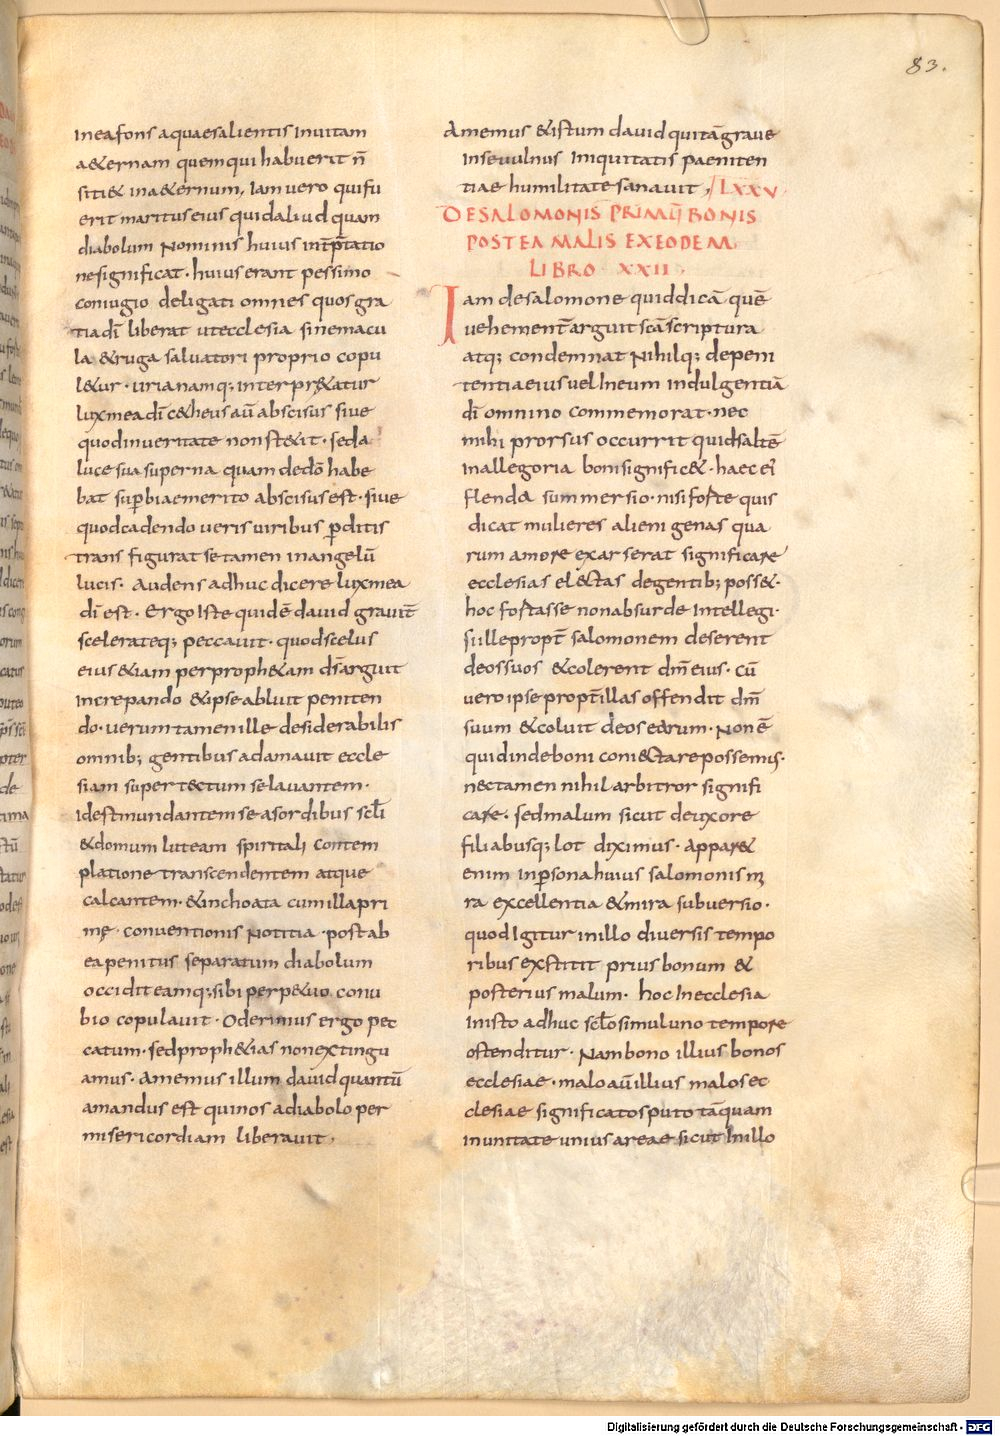 83.
in ea fons aquae salientis in uitam
a&ernam quem qui habuerit n̄
siti& in a&ernum, Iam uero qui fu
erit maritus eius quid aliud quam
diabolum Nominis huius int̄p̄tatio
ne significat· huius erant pessimo
coniugio deligati omnes quos gra
tia dī liberat ut ecclesia sine macu
la &ruga saluatori proprio copu
l&ur· urianamq; interpr&atur
lux mea dī c&heus aū abscisus siue
quod in ueritate non st&it· sed a
luce sua superna quam de dō habe
bat sup̄biae merito abscisus est· siue
quod cadendo ueris uiribus p̄ditis
transfigurat se tamen in angelū
lucis· Audens adhuc dicere lux mea
dī est· Ergo Iste quidē dauid grauit̄
scelerateq; peccauit· quod scelus
eius &iam per proph&am d̄s arguit
increpando &ipse abluit peniten
do· uerum tamen ille desiderabilis
omnib; gentibus adamauit eccle
siam super tectum se lauantem·
id est mundantem se a sordibus sc̄li
&domum luteam spiritali contem
platione transcendentem atque
calcantem· &inchoata cum illa pri
mę conuentionis Notitia· post ab
ea penitus separatum diabolum
occidit eamq; sibi perp&uo conu
bio copulauit· Oderimus ergo pec
catum· sed proph&ias non extingu
amus· Amemus illum dauid quantū
amandus est qui nos a diabolo per
misericordiam liberauit,
Amemus &istum dauid qui tā graue
in se uulnus iniquitatis paeniten
tiae humilitate sanauit, LXXV
DE SALOMONIS PRIMŪ BONIS
POSTEA MALIS EX EODEM
LIBRO · XXII ·
Iam de salomone quid dicā quē
uehement̄ arguit scā scriptura
atq; condemnat Nihilq; de peni
tentia eius uel In eum indulgentiā
dī omnino commemorat· nec
mihi prorsus occurrit quid saltē
in allegoria boni signific&· haec ei
flenda summersio· nisi forte quis
dicat mulieres alienigenas qua
rum amore exarserat significare
ecclesias electas de gentib; poss&·
hoc fortasse non absurde Intellegi·
si ille propt̄ salomonem deserent
deos suos &colerent dm̄ eius· cū
uero ipse propt̄ illas offendit dm̄
suum &coluit deos earum· Non ē
quid inde boni coniectare possemus·
nec tamen nihil arbitror signifi
care· sed malum sicut de uxore
filiabusq; lot diximus· Appar&
enim in p̄sona huius salomonis m
ra excellentia &mira subuersio·
quod Igitur in illo diuersis tempo
ribus exstitit prius bonum &
posterius malum· hoc In ecclesia
In isto adhuc sc̄lo simul uno tempore
ostenditur· Nam bono illius bonos
ecclesiae· malo aū illius malos ec
clesiae significatos puto tāquam
in unitate unius areae sicut In illo
Digitalisierung gefördert durch die Deutsche Forschungsgemeinschaft - DFG